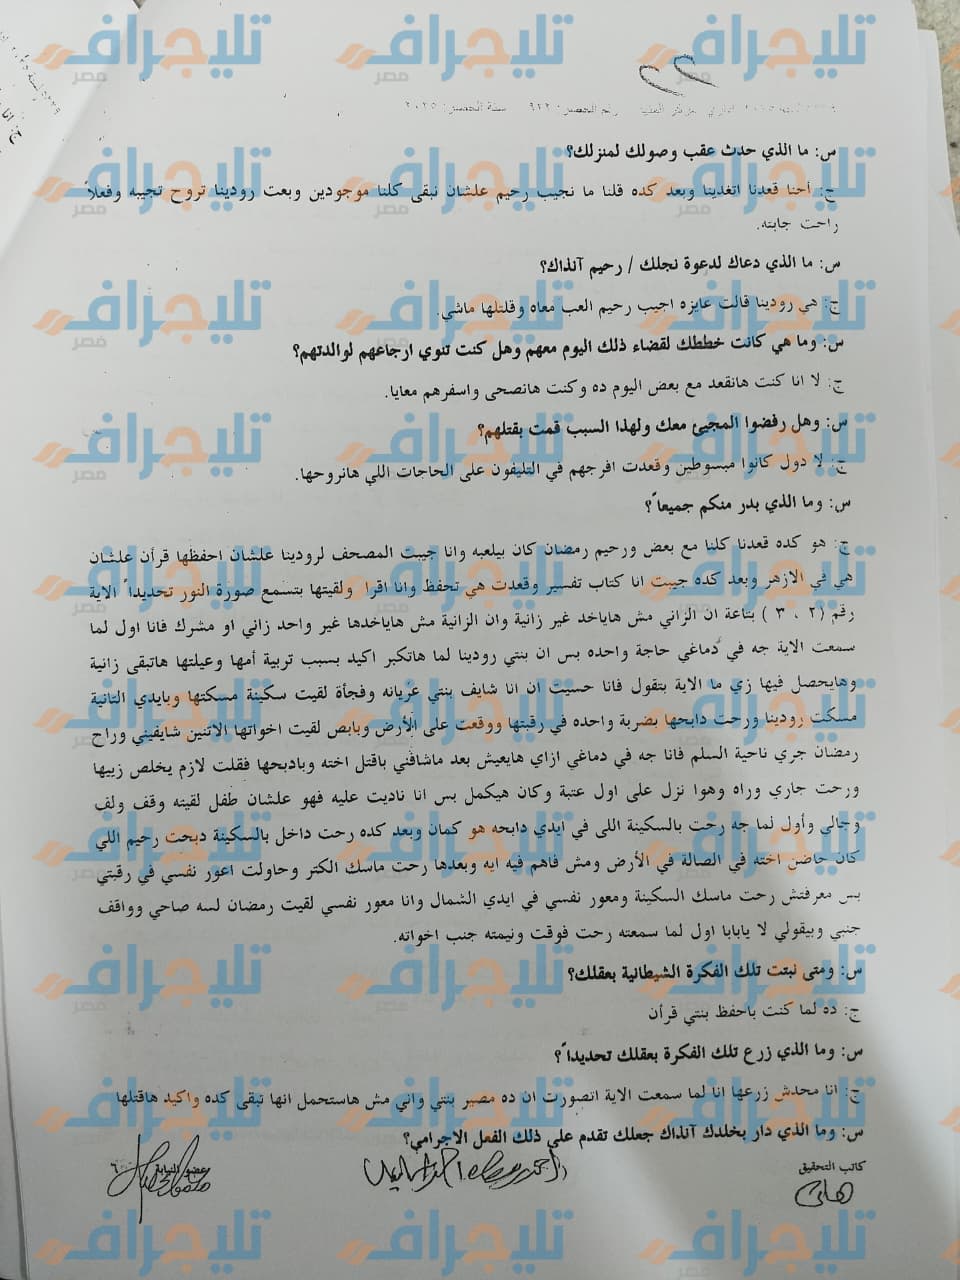 س: ما الذي حدث عقب وصولك لمنزلك؟
ج: أحنا قعدنا اتغدينا وبعد كده قلنا ما نجيب رحيم علشان نبقى كلنا موجودين وبعت رودينا تروح تجيبه وفعلاً
راحت جابته.
س: ما الذي دعاك لدعوة نجلك / رحيم آنذاك؟
ج: هي رودينا قالت عايزه اجيب رحيم العب معاه وقلتلها ماشي.
س: وما هي كانت خططك لقضاء ذلك اليوم معهم وهل كنت تنوي ارجاعهم لوالدتهم؟
ج: لا انا كنت هانقعد مع بعض اليوم ده وكنت هانصحى واسفرهم معايا.
س: وهل رفضوا المجيئ معك ولهذا السبب قمت بقتلهم؟
ج: لا دول كانوا مبسوطين وقعدت افرجهم في التليفون على الحاجات اللي هانروحها.
س: وما الذي بدر منكم جميعاً؟
ج: هو كده قعدنا كلنا مع بعض ورحيم رمضان كان بيلعبه وانا جيبت المصحف لرودينا علشان احفظها قرأن علشان
هي في الازهر وبعد كده جيبت انا كتاب تفسير وقعدت هي تحفظ وانا اقرا ولقيتها بتسمع صورة النور تحديداً الاية
رقم (٢ ، ٣ ) بتاعة ان الزاني مش هاياخد غير زانية وان الزانية مش هاياخدها غير واحد زاني او مشرك فانا اول لما
سمعت الاية جه في دماغي حاجة واحده بس ان بنتي رودينا لما هاتكبر اكيد بسبب تربية أمها وعيلتها هاتبقى زانية
وهايحصل فيها زي ما الاية بتقول فانا حسيت ان انا شايف بنتي عريانه وفجأة لقيت سكينة مسكتها وبايدي التانية
مسكت رودينا ورحت دابحها بضربة واحده في رقبتها ووقعت على الأرض وبابص لقيت اخواتها الاتنين شايفيني وراح
رمضان جري ناحية السلم فانا جه في دماغي ازاي هايعيش بعد ماشافني باقتل اخته وبادبحها فقلت لازم يخلص زييها
ورحت جاري وراه وهوا نزل على اول عتبة وكان هيكمل بس انا ناديت عليه فهو علشان طفل لقيته وقف ولف
وجالى وأول لما جه رحت بالسكينة اللى في ايدي دابحه هو كمان وبعد كده رحت داخل بالسكينة دبحت رحيم اللي
كان حاضن اخته في الصالة في الأرض ومش فاهم فيه ايه وبعدها رحت ماسك الكتر وحاولت اعور نفسي في رقبتي
بس معرفتش رحت ماسك السكينة ومعور نفسي في ايدي الشمال وانا معور نفسي لقيت رمضان لسه صاحي وواقف
جنبي وبيقولي لا يابابا اول لما سمعته رحت فوقت ونيمته جنب اخواته.
س: ومتى نبتت تلك الفكرة الشيطانية بعقلك؟
ج: ده لما كنت باحفظ بنتي قرأن
س: وما الذي زرع تلك الفكرة بعقلك تحديداً؟
ج: انا محدش زرعها انا لما سمعت الاية اتصورت ان ده مصير بنتي واني مش هاستحمل انها تبقى كده واكيد هاقتلها
س: وما الذي دار بخلدك آنذاك جعلك تقدم على ذلك الفعل الاجرامي؟
كاتب التحقيق
عضو النيابة